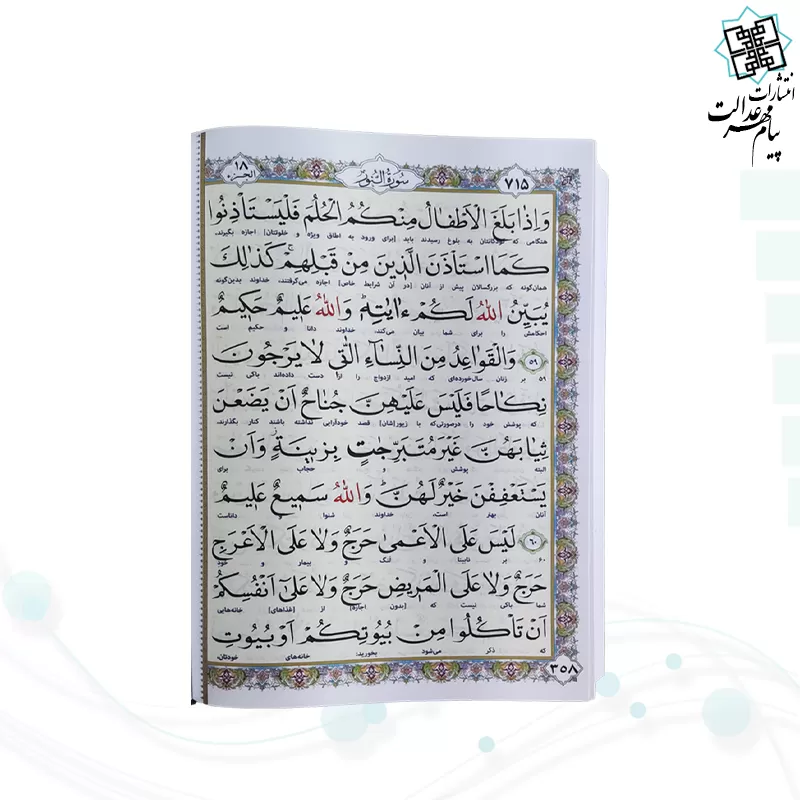 انتشارات
پیام مهر عدالت
۷۱۵
سورة النور
۱۸
الجزء
وَاِذٰا بَلَغَ الْاَطْفٰالُ مِنْكُمُ الْحُلُمَ فَلْيَسْتَأْذِنُوا
هنگامی که کودکانتان به بلوغ رسیدند باید [برای ورود به اطاق ویژه و خلوتتان] اجازه بگیرند.
كَمَا اسْتَأْذَنَ الَّذِينَ مِنْ قَبْلِهِمْ كَذٰلِكَ
همان‌گونه که بزرگسالان پیش از آنان [در آن شرایط خاص] اجازه می‌گرفتند، خداوند بدین‌گونه
يُبَيِّنُ اللهُ لَكُمْ ءٰايٰتِهِ وَاللهُ عَلِيمٌ حَكِيمٌ
احکامش را برای شما بیان می‌کند، خداوند دانا و حکیم است
۵۹ وَالْقَوٰاعِدُ مِنَ النِّسٰاءِ الّٰتِي لٰا يَرْجُونَ
۵۹ بر زنان سال‌خورده‌ای که امید ازدواج را از دست داده‌اند باکی نیست
نِكٰاحًا فَلَيْسَ عَلَيْهِنَّ جُنٰاحٌ اَنْ يَضَعْنَ
که پوشش خود را درصورتی‌که با زیور[شان] قصد خودآرایی نداشته باشند کنار بگذارند،
ثِيٰابَهُنَّ غَيْرَ مُتَبَرِّجٰتٍ بِزِينَةٍ وَاَنْ
البته پوشش و حجاب برای
يَسْتَعْفِفْنَ خَيْرٌ لَهُنَّ وَاللهُ سَمِيعٌ عَلِيمٌ
آنان بهتر است، خداوند شنوا داناست
۶۰ لَيْسَ عَلَى الْاَعْمىٰ حَرَجٌ وَلٰا عَلَى الْاَعْرَجِ
۶۰ بر نابینا و لنگ و بیمار و خود
حَرَجٌ وَلٰا عَلَى الْمَرِيضِ حَرَجٌ وَلٰا عَلىٰ اَنْفُسِكُمْ
شما باکی نیست که [بدون اجازه] از [غذاهای] خانه‌هایی
اَنْ تَأْكُلُوا مِنْ بُيُوتِكُمْ اَوْ بُيُوتِ
که ذکر می‌شود بخورید: خانه‌های خودتان،
۳۵۸